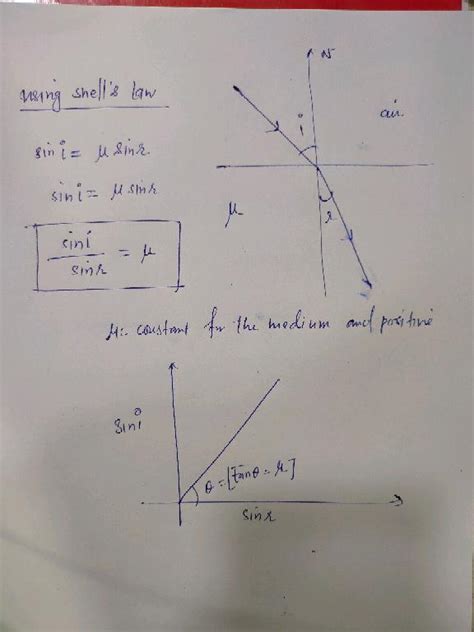 using shell's law
sin i = μ sinr.
sin i = μ sinr
sin i / sinr = μ
N
air
i
μ
r
μ:- constant for the medium and positive
sin i
θ = [tanθ = μ]
sinr